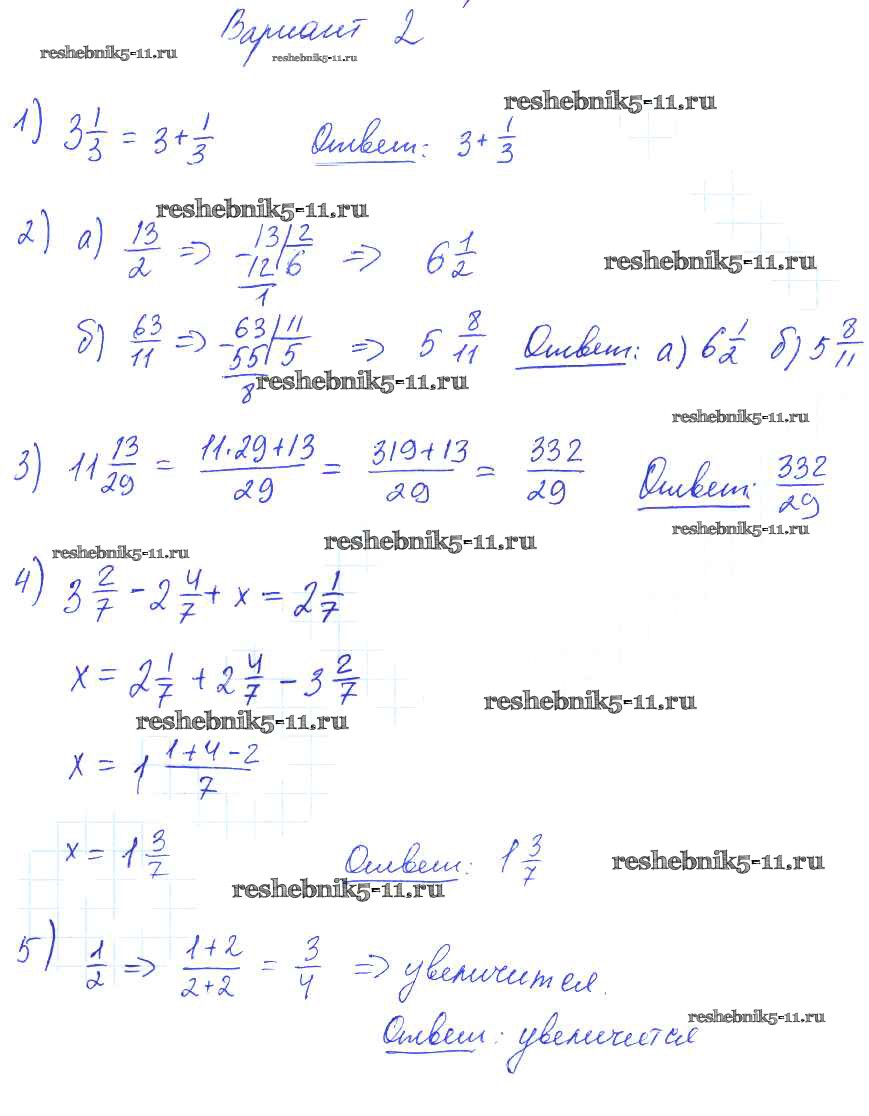 Вариант 2
reshebnik5-11.ru reshebnik5-11.ru
reshebnik5-11.ru
1) 3 1/3 = 3 + 1/3 Ответ: 3 + 1/3
reshebnik5-11.ru
2) а) 13/2 => 13 | 2 => 6 1/2
- 12 | 6
1
reshebnik5-11.ru
б) 63/11 => 63 | 11 => 5 8/11 Ответ: а) 6 1/2 б) 5 8/11
- 55 | 5
8
reshebnik5-11.ru
reshebnik5-11.ru
3) 11 13/29 = 11·29+13/29 = 319+13/29 = 332/29 Ответ: 332/29
reshebnik5-11.ru
reshebnik5-11.ru
reshebnik5-11.ru
4) 3 2/7 - 2 4/7 + x = 2 1/7
x = 2 1/7 + 2 4/7 - 3 2/7
reshebnik5-11.ru
reshebnik5-11.ru
x = 1 1+4-2/7
x = 1 3/7 Ответ: 1 3/7
reshebnik5-11.ru
reshebnik5-11.ru
5) 1/2 => 1+2/2+2 = 3/4 => увеличится.
reshebnik5-11.ru
Ответ: увеличится